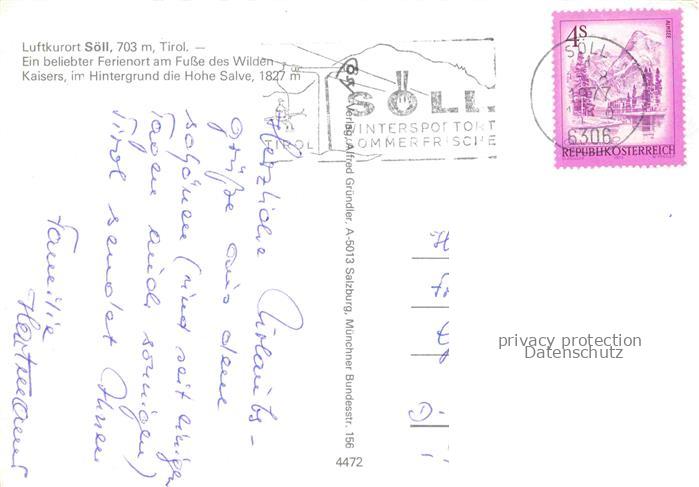 Luftkurort Söll, 703 m, Tirol. —
Ein beliebter Ferienort am Fuße des Wilden
Kaisers, im Hintergrund die Hohe Salve, 1827 m
SÖLL
WINTERSPORTORT
SOMMERFRISCHE
TIROL
4S
ALMSEE
REPUBLIK ÖSTERREICH
SÖLL
1977
6306
Herzliche Urlaubs-
grüße aus dem
schönen (und seit einigen
Tagen auch sonnigen)
Tirol sendet Ihnen
Familie
Verlag Alfred Gründler, A-5013 Salzburg, Münchner Bundesstr. 156
4472
D-
privacy protection
Datenschutz